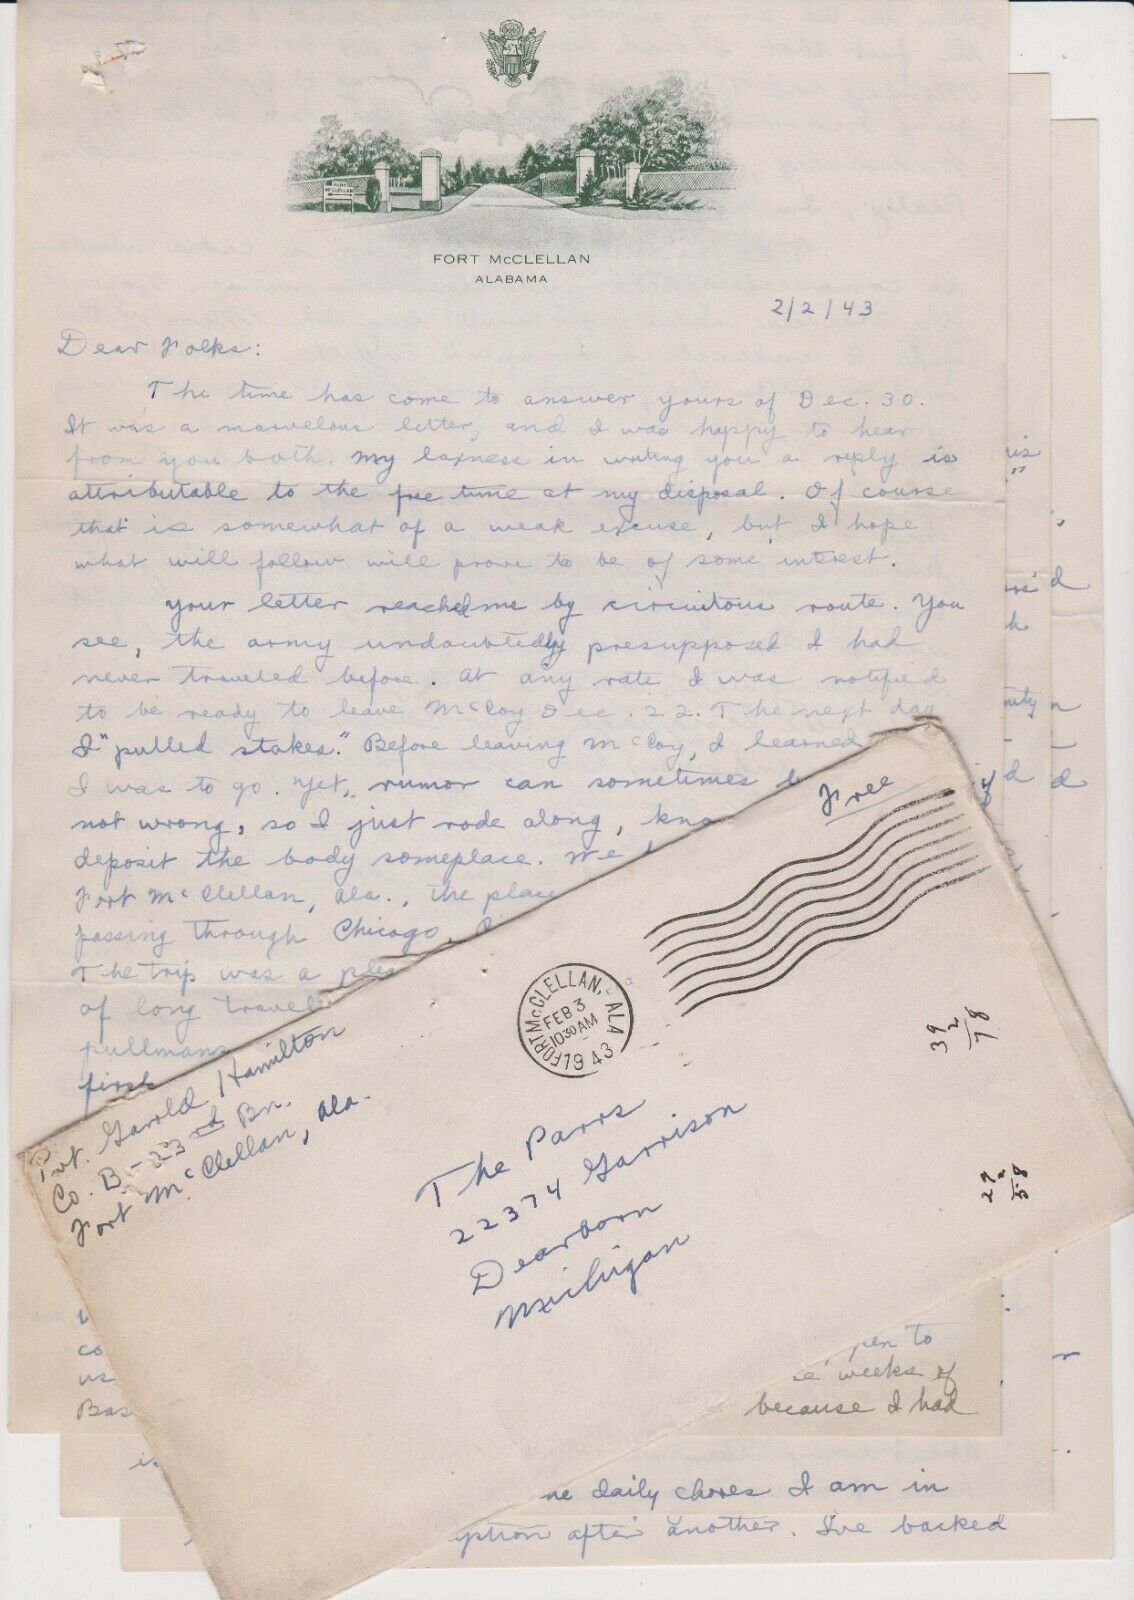 FORT McCLELLAN
FORT McCLELLAN
ALABAMA
2/2/43
Dear Folks:
The time has come to answer yours of Dec. 30.
It was a marvelous letter, and I was happy to hear
from you both. My laxness in writing you a reply is
attributable to the free time at my disposal. Of course
that is somewhat of a weak excuse, but I hope
what will follow will prove to be of some interest.
Your letter reached me by circuitous route. You
see, the army undoubtedly presupposed I had
never traveled before. At any rate I was notified
to be ready to leave McCoy Dec. 22. The next day
I "pulled stakes." Before leaving McCoy, I learned
I was to go. Yet, rumor can sometimes
not wrong, so I just rode along,
deposit the body someplace. We
Fort McClellan, Ala., the place
passing through Chicago,
The trip was a
of long travel
pullmans
first
Free
FORT McCLELLAN, ALA
FEB 3
10 30 AM
1943
Pvt. Garold Hamilton
Co. B - 23rd Bn.
Fort McClellan, Ala.
The Parrs
22374 Garrison
Dearborn
Michigan
39
2
78
29
2
58
pen to
weeks of
us
because I had
Bas
is
daily chores I am in
after another. I've backed